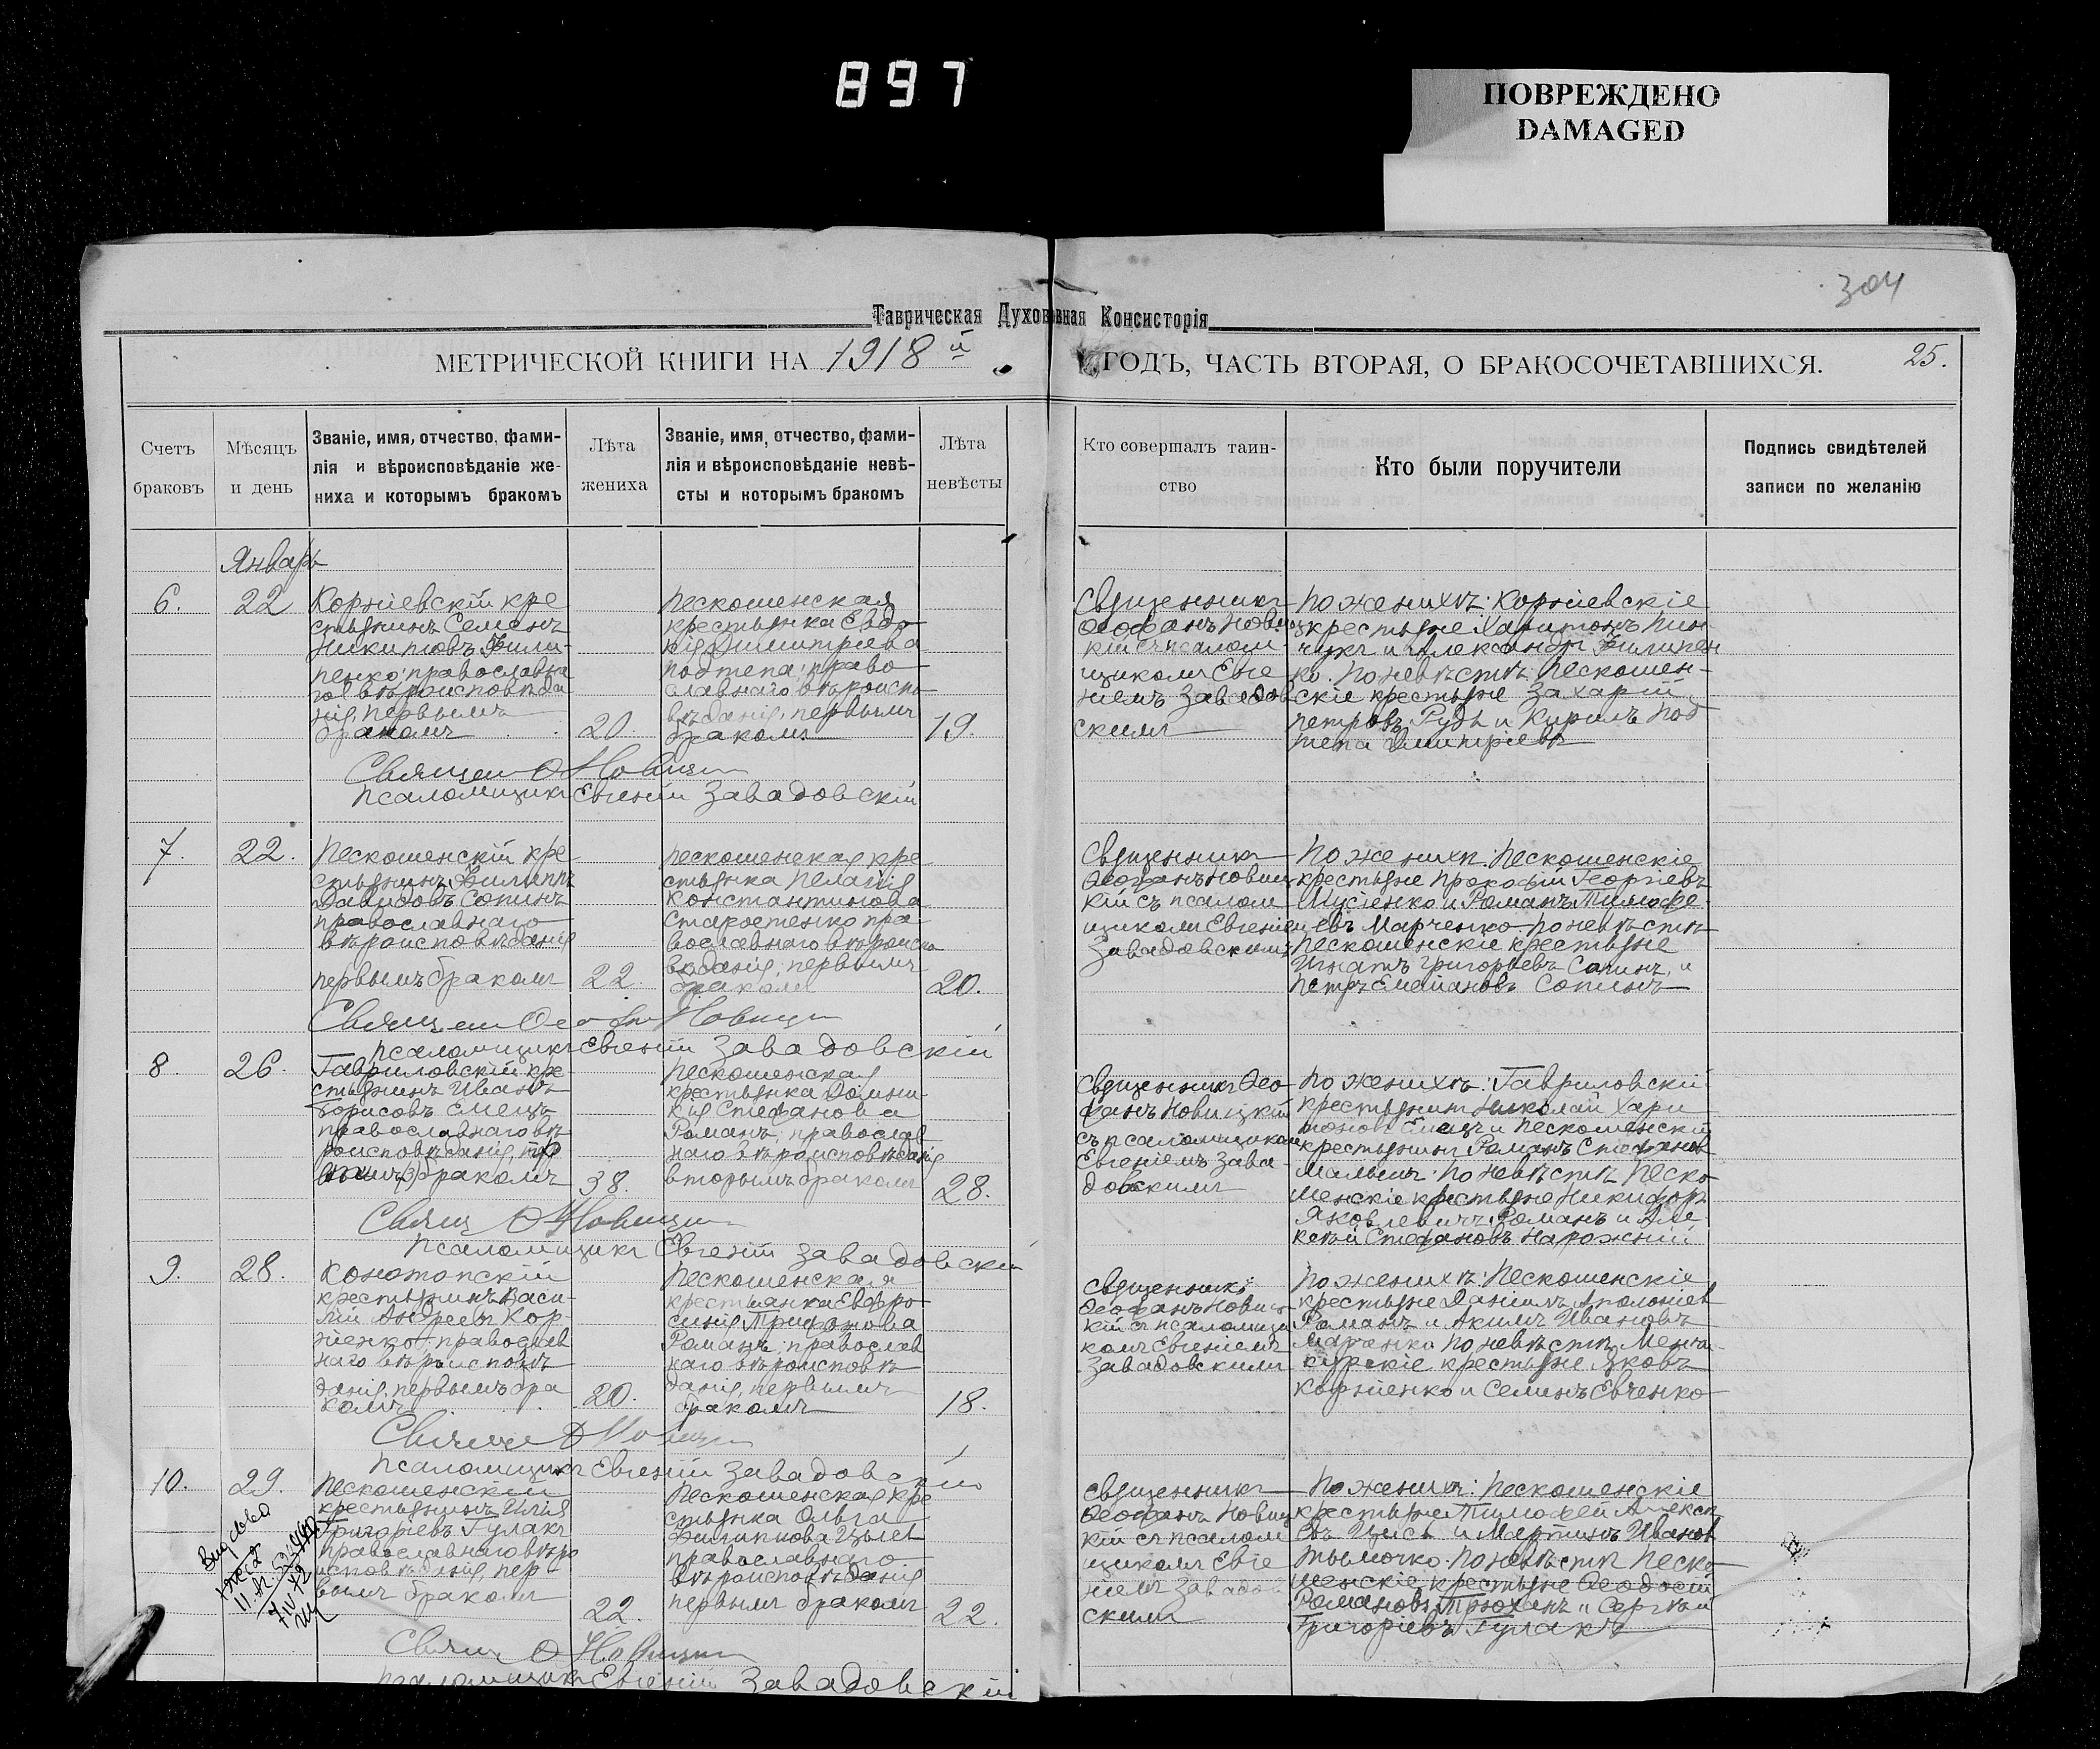 897
ПОВРЕЖДЕНО
DAMAGED
304
Таврическая Духовная Консисторія
МЕТРИЧЕСКОЙ КНИГИ НА 1918й ГОДЪ, ЧАСТЬ ВТОРАЯ, О БРАКОСОЧЕТАВШИХСЯ. 25.
Счетъ браковъ
Мѣсяцъ и день
Званіе, имя, отчество, фами-
лія и вѣроисповѣданіе же-
ниха и которымъ бракомъ
Лѣта жениха
Званіе, имя, отчество, фами-
лія и вѣроисповѣданіе невѣ-
сты и которымъ бракомъ
Лѣта невѣсты
Кто совершалъ таин-
ство
Кто были поручители
Подпись свидѣтелей
записи по желанію
Январь
6.
22
Корніевскій кре
стьянинъ Семенъ
Никитовъ Фили-
пенко; православна
го вѣроисповѣда
нія, первымъ
бракомъ
20.
Пескошенская
крестьянка Евдо
кія Димитріева
Подтепа; право
славнаго вѣроиспо
вѣданія, первымъ
бракомъ
19.
Священникъ
Ѳеофанъ Новиц
кій съ псалом-
щикомъ Евге
ніемъ Завадов
скимъ
По женихѣ: Корніевскіе
крестьяне Харитонъ Пин-
чукъ и Александръ Филипен
ко. По невѣстѣ: Пескошен-
скіе крестьяне Захарій
Петровъ Рудь и Кирилъ Под
тепа Димитріевъ
Священ Ѳ Новицкій
Псаломщикъ Евгеній Завадовскій
7.
22.
Пескошенскій кре
стьянинъ Филиппъ
Давидовъ Сопинъ
православнаго
вѣроисповѣданія
первымъ бракомъ
22.
Пескошенская кре
стьянка Пелагія
Константинова
Старостенко пра-
вославнаго вѣроиспо
вѣданія; первымъ
бракомъ
20.
Священникъ
Ѳеофанъ Новиц
кій съ псалом
щикомъ Евгеніем
Завадовскимъ
По женихѣ: Пескошенскіе
крестьяне Прокофій Георгіевъ
Мусіенко и Романъ Тимофе-
евъ Марченко по невѣстѣ
Пескошенскіе крестьяне
Игнатъ Григорьевъ Сопинъ, и
Петръ Емеліановъ Сопинъ
Священ Ѳеофан Новицкій
псаломщикъ Евгеній Завадовскій
8.
26.
Гавриловскій кре
стьянинъ Иванъ
Борисовъ Емецъ
православнаго вѣ
роисповѣданія,
бракомъ
38.
Пескошенская
крестьянка Домни-
кія Стефанова
Романъ; православ
наго вѣроисповѣданія
вторымъ бракомъ
28.
Священникъ Ѳео
фанъ Новицкій
съ псаломщиком
Евгеніемъ Зава-
довскимъ
По женихѣ: Гавриловскій
крестьянинъ Николай Хари
тоновъ Емецъ и Пескошенскій
крестьянинъ Романъ Стефанов
Малышъ: По невѣстѣ Песко
шенскіе крестьяне Никифоръ
Яковлевичъ Романъ и Але
ксѣй Стефановъ Нарожній
Свящ Ѳ Новицкій
Псаломщикъ Евгеній Завадовскій
9.
28.
Конотопскій
крестьянинъ Васи-
лій Андреевъ Кор-
ніенко; православ
наго вѣроисповѣ
данія, первымъ бра
комъ
20.
Пескошенская
крестьянка Евфро
синія Трифонова
Романъ; православ
наго вѣроисповѣ
данія, первымъ
бракомъ
18.
Священникъ
Ѳеофанъ Новиц
кій съ псаломщи
комъ Евгеніемъ
Завадовскимъ
По женихѣ: Пескошенскіе
крестьяне Даніилъ Аполоніев
Романъ и Акимъ Ивановъ
Марченко по невѣстѣ Менча-
курскіе крестьяне Яковъ
Корніенко и Семенъ Евченко
Священ Ѳ Новицкій
Псаломщикъ Евгеній Завадовскій
10.
29.
Пескошенскій
крестьянинъ Илія
Григорьевъ Гулакъ
православнаго вѣро
исповѣданія, пер
вымъ бракомъ
22.
Пескошенская кре
стьянка Ольга
Филиппова Цысь
православнаго
вѣроисповѣданія
первымъ бракомъ
22.
Священникъ
Ѳеофанъ Новиц
кій съ псалом
щикомъ Евге
ніемъ Завадов
скимъ
По женихѣ: Пескошенскіе
крестьяне Тимофей Алексѣ
евъ Цысь и Мартинъ Иванов
Тымочко. По невѣстѣ Песко
шенскіе крестьяне Ѳеодосій
Романовъ Трюхинъ и Сергѣй
Григоріевъ Гулакъ
Свящ Ѳ Новицкій
псаломщикъ Евгеній Завадовскій